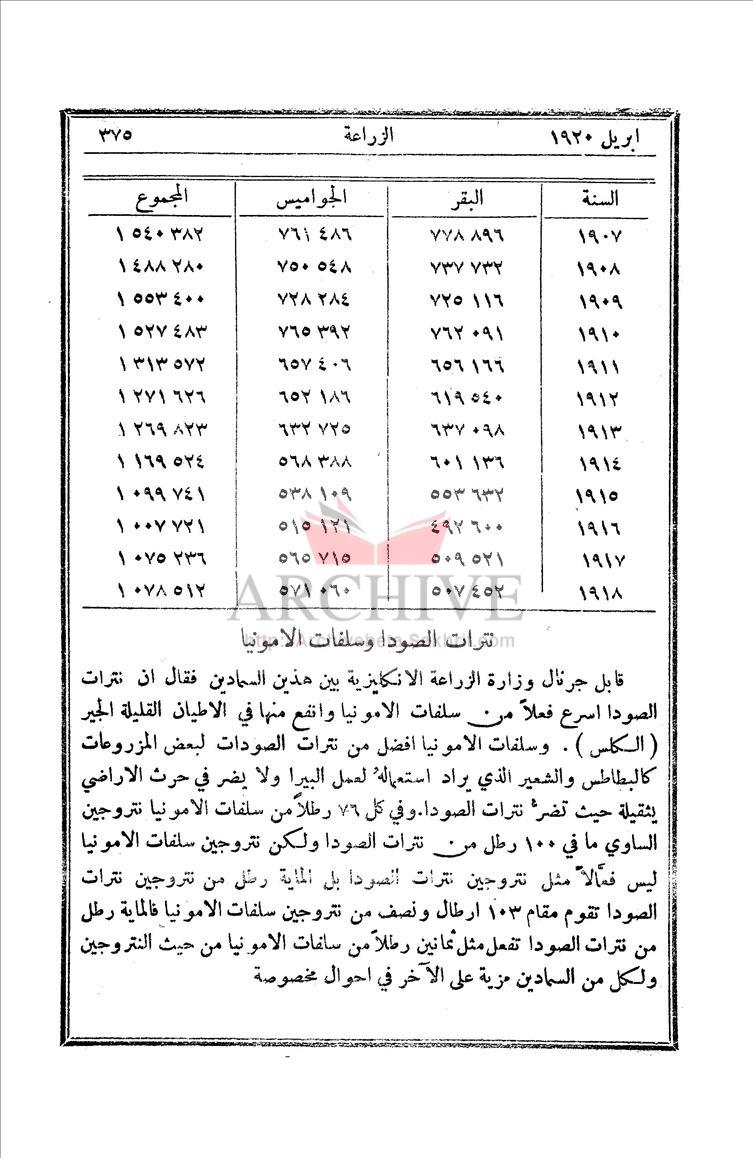 ابريل ١٩٢٠ الزراعة ٣٧٥
السنة البقر الجواميس المجموع
١٩٠٧ ٧٧٨ ٨٩٦ ٧٦١ ٤٨٦ ١ ٥٤٠ ٣٨٢
١٩٠٨ ٧٣٧ ٧٣٢ ٧٥٠ ٥٤٨ ١ ٤٨٨ ٢٨٠
١٩٠٩ ٧٢٥ ١١٦ ٧٢٨ ٢٨٤ ١ ٥٥٣ ٤٠٠
١٩١٠ ٧٦٢ ٠٩١ ٧٦٥ ٣٩٢ ١ ٥٢٧ ٤٨٣
١٩١١ ٦٥٦ ١٦٦ ٦٥٧ ٤٠٦ ١ ٣١٣ ٥٧٢
١٩١٢ ٦١٩ ٥٤٠ ٦٥٢ ١٨٦ ١ ٢٧١ ٦٢٦
١٩١٣ ٦٣٧ ٠٩٨ ٦٣٢ ٧٢٥ ١ ٢٦٩ ٨٢٣
١٩١٤ ٦٠١ ١٣٦ ٥٦٨ ٣٨٨ ١ ١٦٩ ٥٢٤
١٩١٥ ٥٥٣ ٦٣٢ ٥٣٨ ١٠٩ ١ ٠٩٩ ٧٤١
١٩١٦ ٤٩٢ ٦٠٠ ٥١٥ ١٢١ ١ ٠٠٧ ٧٢١
١٩١٧ ٥٠٩ ٥٢١ ٥٦٥ ٧١٥ ١ ٠٧٥ ٢٣٦
١٩١٨ ٥٠٧ ٤٥٢ ٥٧١ ٠٦٠ ١ ٠٧٨ ٥١٢
ARCHIVE
نترات الصودا وسلفات الامونيا
قابل جرنال وزارة الزراعة الانكليزية بين هذين السمادين فقال ان نترات
الصودا اسرع فعلاً من سلفات الامونيا وانفع منها في الاطيان القليلة الجير
(الكلس). وسلفات الامونيا افضل من نترات الصودات لبعض المزروعات
كالبطاطس والشعير الذي يراد استعمالهُ لعمل البيرا ولا يضر في حرث الاراضي
يثقيلة حيث تضرُّ نترات الصودا. وفي كل ٧٦ رطلاً من سلفات الامونيا نتروجين
الساوي ما في ١٠٠ رطل من نترات الصودا ولكن نتروجين سلفات الامونيا
ليس فعَّالاً مثل نتروجين نترات الصودا بل الماية رطل من نتروجين نترات
الصودا تقوم مقام ١٠٣ ارطال ونصف من نتروجين سلفات الامونيا فالماية رطل
من نترات الصودا تفعل مثل ثمانين رطلاً من سلفات الامونيا من حيث النتروجين
ولكل من السمادين مزية على الآخر في احوال مخصوصة